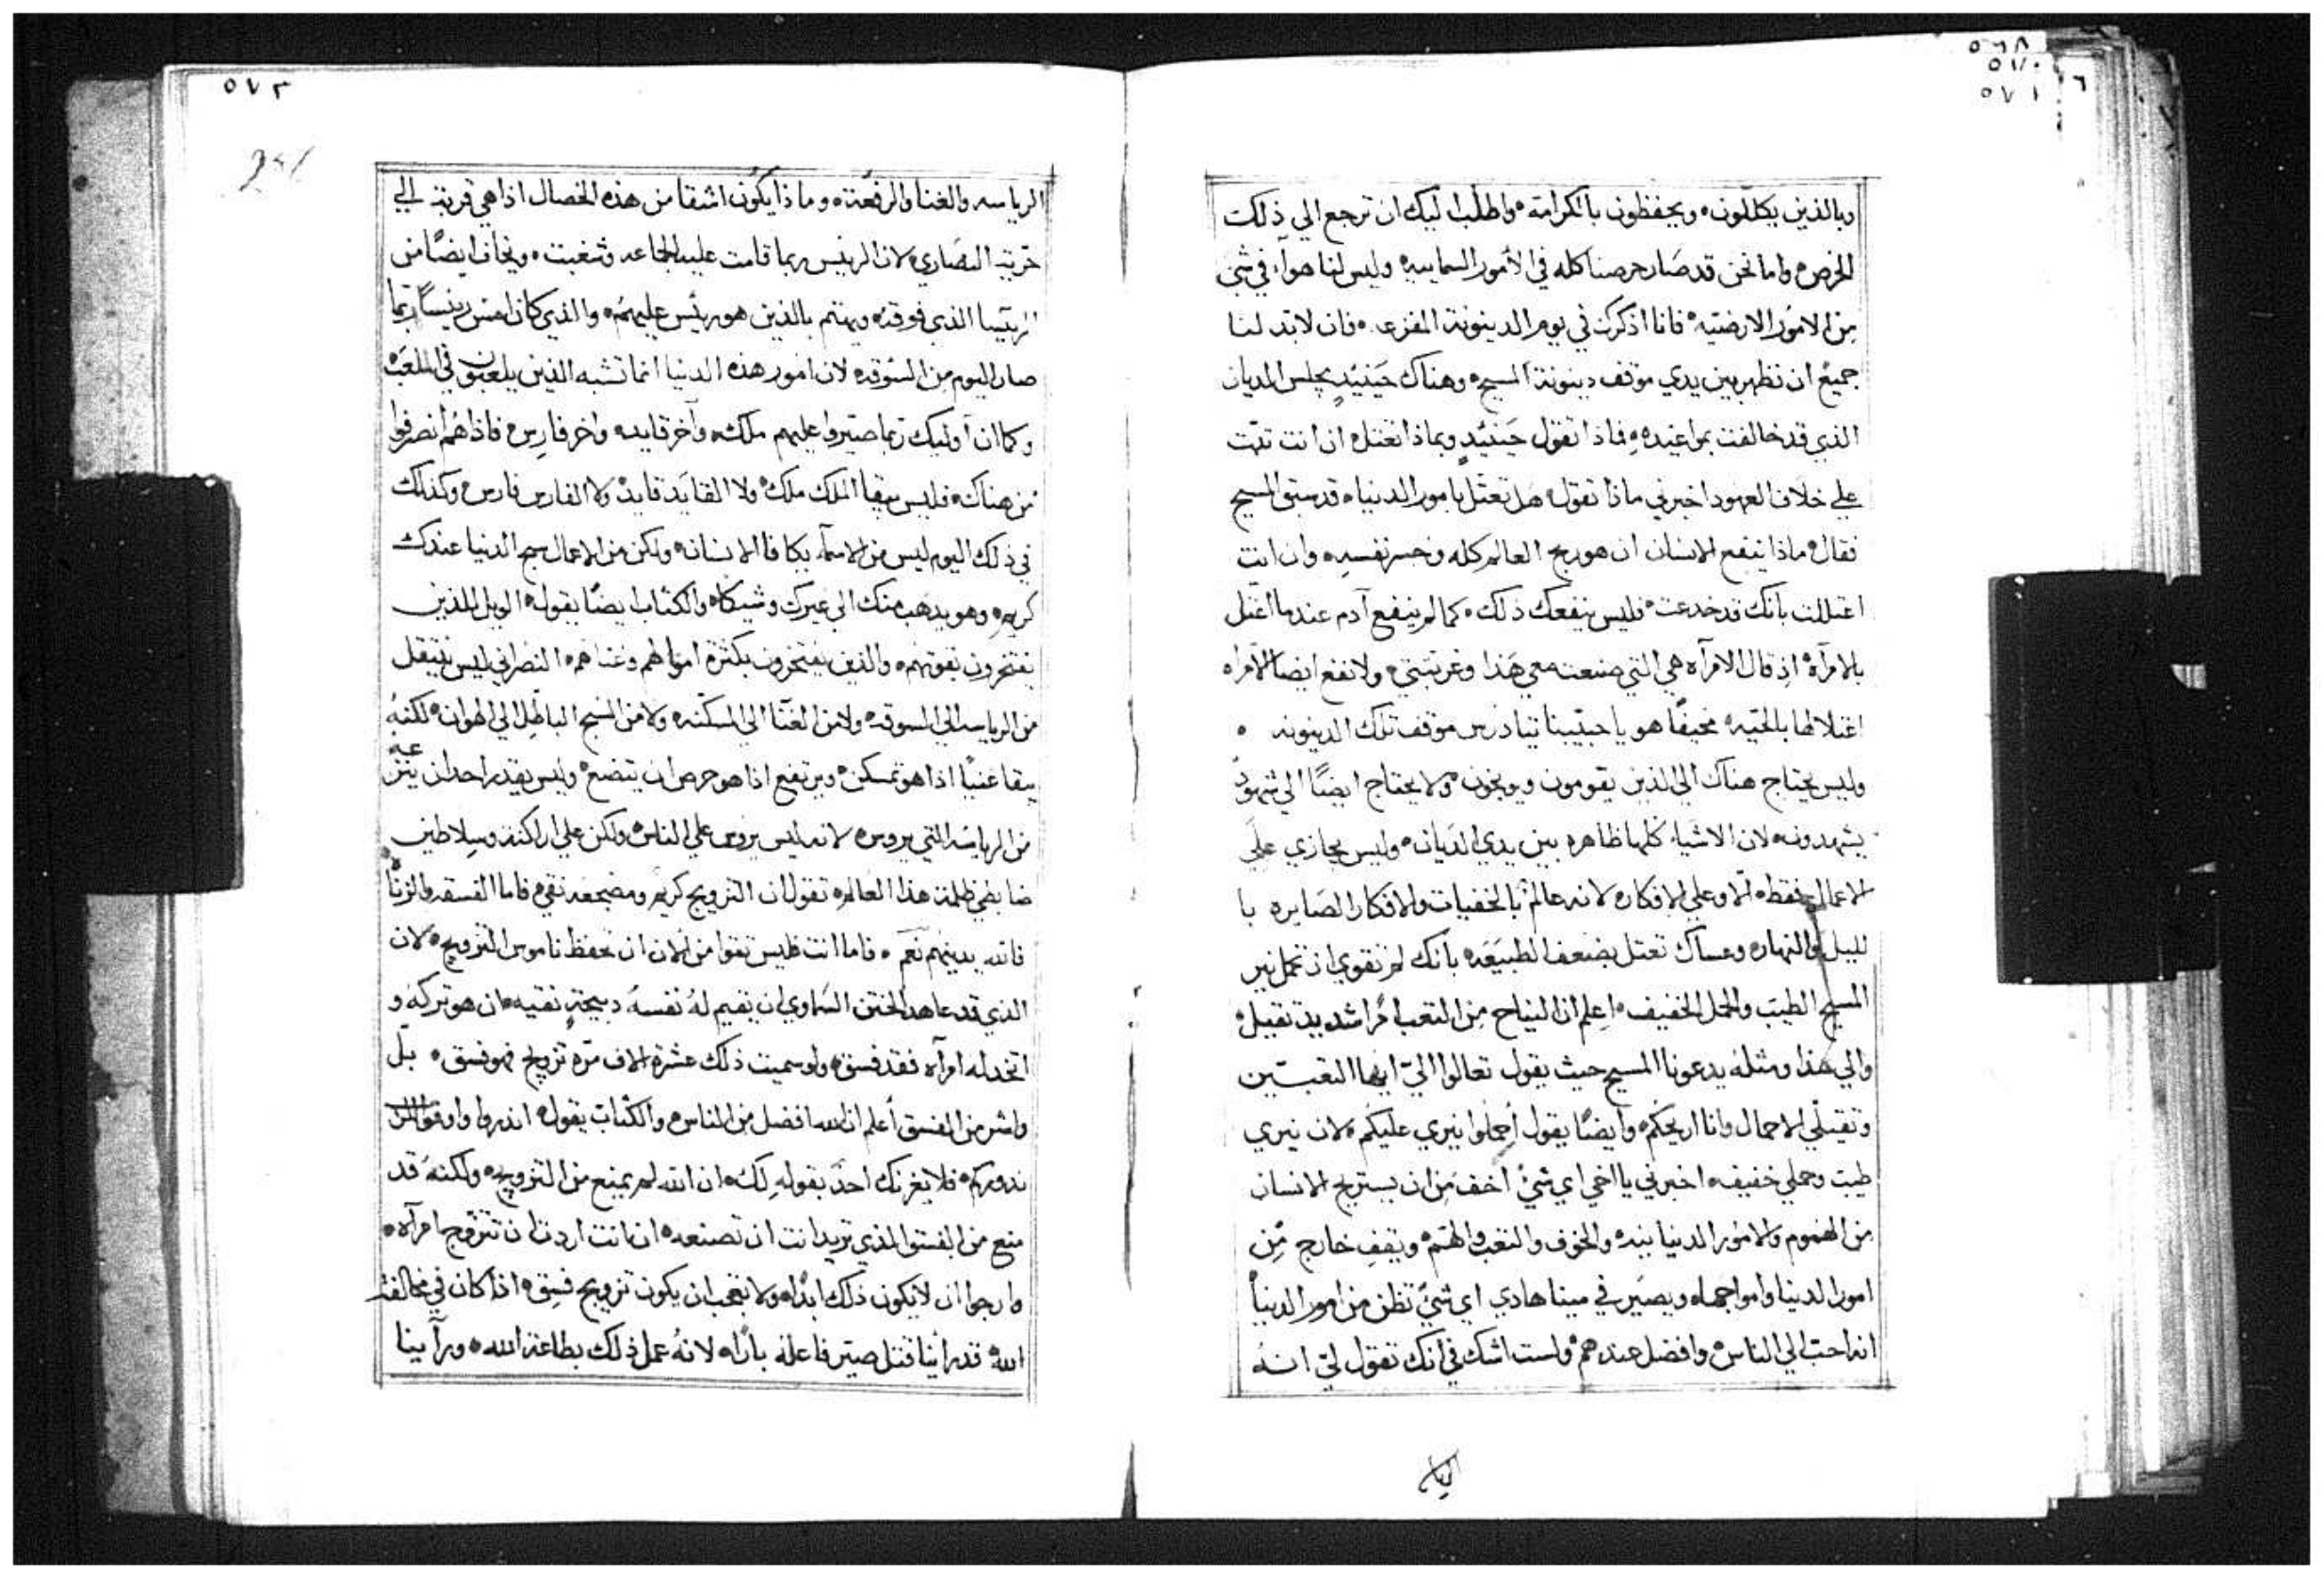 ٥٦٨
٥٧٠
٥٧١
٦
وبالذين يكللون ويحفظون بالكرامه واطلب اليك ان ترجع الي ذلك
الحرص واما نحن قد صار حرصنا كله في الأمور السماييه وليس لنا هوآء في شي
من الامور الارضيه فانا اذكرك في يوم الدينونة المفزعه فان لابد لنا
جميع ان نظهر بين يدي موقف دينونة المسيح وهناك حينيد يجلس الديان
الذي قد خالفت مواعيده فماذا تقول حينيد وبماذا تعتل ان انت تمت
علي خلاف العهود اخبرني ماذا تقول هل تعتل بامور الدنيا قد سبق المسيح
فقال ماذا ينفع الانسان ان هو ربح العالم كله وخسر نفسه وان انت
اعتللت بانك قد خدعت فليس ينفعك ذلك كما لم ينفع آدم عندما اعتل
بالامرآة اذ قال الامرآه هي التي صنعت معي هذا وغرتني ولا نفع ايضا الامراه
اعتلالها بالحيه مخيفًا هو يا حبيبنا تيادرس موقف تلك الدينونه
وليس يحتاج هناك الي الذين يقومون ويوبخون ولا يحتاج ايضًا الي شهود
يشهدون لان الاشياء كلها ظاهره بين يدي الديان وليس يجازي علي
الاعمال فقط الا وعلي الافكار لانه عالم بالخفيات والافكار الصايره با
لليل والنهار وعساك تعتل بضعف الطبيعه بانك لم تقوي ان تحمل نير
المسيح الطيب والحمل الخفيف اعلم ان النياح من التعب امرًا شديد ثقيل
والي هذا ومثله يدعونا المسيح حيث يقول تعالوا الي ايها التعبين
وثقيلي الاحمال وانا اريحكم وايضًا يقول احملوا نيري عليكم لان نيري
طيب وحملي خفيف اخبرني يا اخي اي شي اخف من ان يستريح الانسان
من الهموم والامور الدنيانيه والخوف والتعب والهم ويقف خارج من
امور الدنيا وامواجها ويصير في مينا هادي اي شي تظن من امور الدنيا
انه احب الي الناس وافضل عندهم ولست اشك في انك تقول لي انه
٥٧٢
الرياسه والغنا والرفعة وماذا يكون اشقا من هذه الخصال اذا هي قرنت الي
حرية النصاري لان الرئيس ربما قامت عليه الجماعه وشغبت ويخاف ايضًا من
الرييسا الذي فوقه ويهتم بالذين هو رئيس عليهم والذي كان امس رئيسًا ربما
صار اليوم من السوقه لان امور هذه الدنيا انما تشبه الذين يلعبون في الملعب
وكما ان أوليك ربما صيروا عليهم ملك وآخر قايد واخر فارس فاذا هم انصرفوا
من هناك فليس يبقا الملك ملك ولا القايد قايد ولا الفارس فارس وكذلك
في ذلك اليوم ليس من الاسمآء يكافا الانسان ولكن من الاعمال مجد الدنيا عندك
كريم وهو يذهب منك الي غيرك وشيكا والكتاب ايضًا يقول الويل للذين
يفتخرون بقوتهم والذين يفتخرون بكثرة اموالهم وغناهم النصراني ليس ينتقل
من الرياسه الي السوقه ولا من الغنا الي المسكنه ولا من المجد الباطل الي الهوان لكنه
يبقا غنيًا اذا هو تمسكن ويرتفع اذا هو حرص ان يتضع وليس يقدر احد ان ينزعه
من الرياسه التي يروس لانه ليس يروس علي الناس ولكن علي اراكنة وسلاطين
ضابطي ظلمة هذا العالم تقول ان التزويج كريم ومضجعه نقي فاما الفسقه والزناه
فالله يدينهم نعم فاما انت فليس تقوا من الان ان تحفظ ناموس التزويج لان
الذي قد عاهد الختن السماوي ان يقيم له نفسه ذبيحة نقيه ان هو تركه و
اتخد له امرآه فقد فسق ولو سميت ذلك عشرة الاف مره تزويج فهو فسق بل
واشر من الفسق أعلم ان الله افضل من الناس والكتاب يقول انذروا واوفوا الرب
نذوركم فلا يغرنك احد بقوله لك ان الله لم يمنع من التزويج ولكنه قد
منع من الفسق الذي تريد انت ان تصنعه ان انت اردت ان تتزوج امرآه
وارجوا ان لا يكون ذلك ابدا ولا تعجب ان يكون تزويج فسق اذا كان في مخالفة
الله قد راينا قتل صير فاعله بارا لانه عمل ذلك بطاعة الله ورآينا